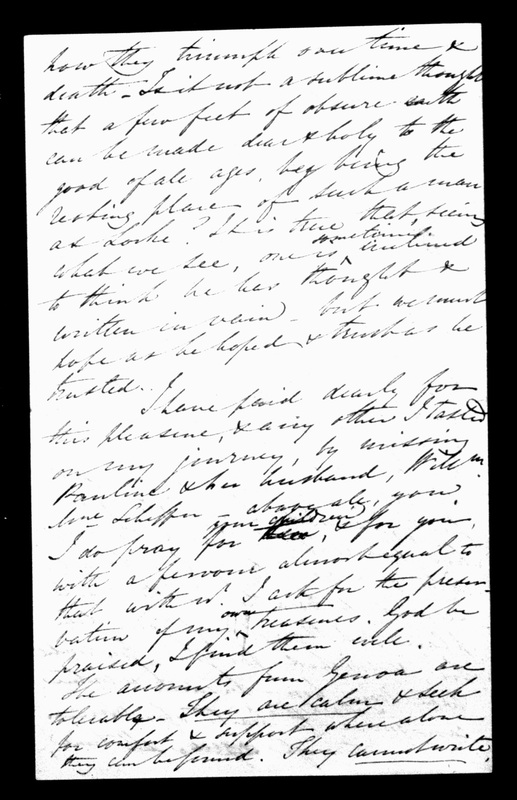 how they triumph over time &
death - Is it not a sublime thought
that a few feet of obscure earth
can be made dear & holy to the
good of all ages, by being the
resting place of such a man
as Locke? It is true that, seeing
what we see, one is sometimes inclined
to think he has thought &
written in vain - but we must
hope as he hoped & trust as he
trusted.
I have paid dearly for
this pleasure, & any other I tasted
on my journey, by missing
Pauline & her husband,
Mme Scheffer - above all, you
I do pray for your children, & for you,
with a fervour almost equal to
that with wh. I ask for the preser-
vation of my own treasures. God be
praised, I find them well.
The accounts from Genoa are
tolerable - They are calm & seek
for comfort & support where alone
they can be found. They cannot write,